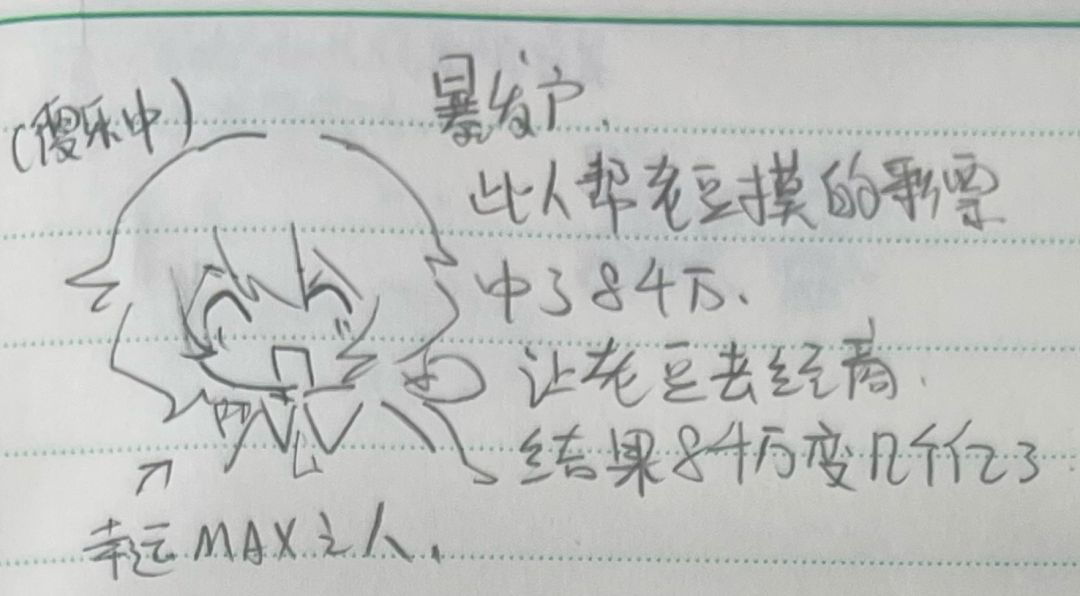 (傻乐中)
暴发户.
此人帮老豆摸的彩票
中了84万、
让老豆去经商.
结果84万变几个亿了
幸运MAX之人.